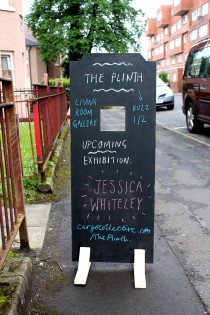 THE PLINTH
LIVING ROOM GALLERY
BUZZ 1/2
UPCOMING
EXHIBITION:
JESSICA
WHITELEY
cargocollective.com
/The Plinth.